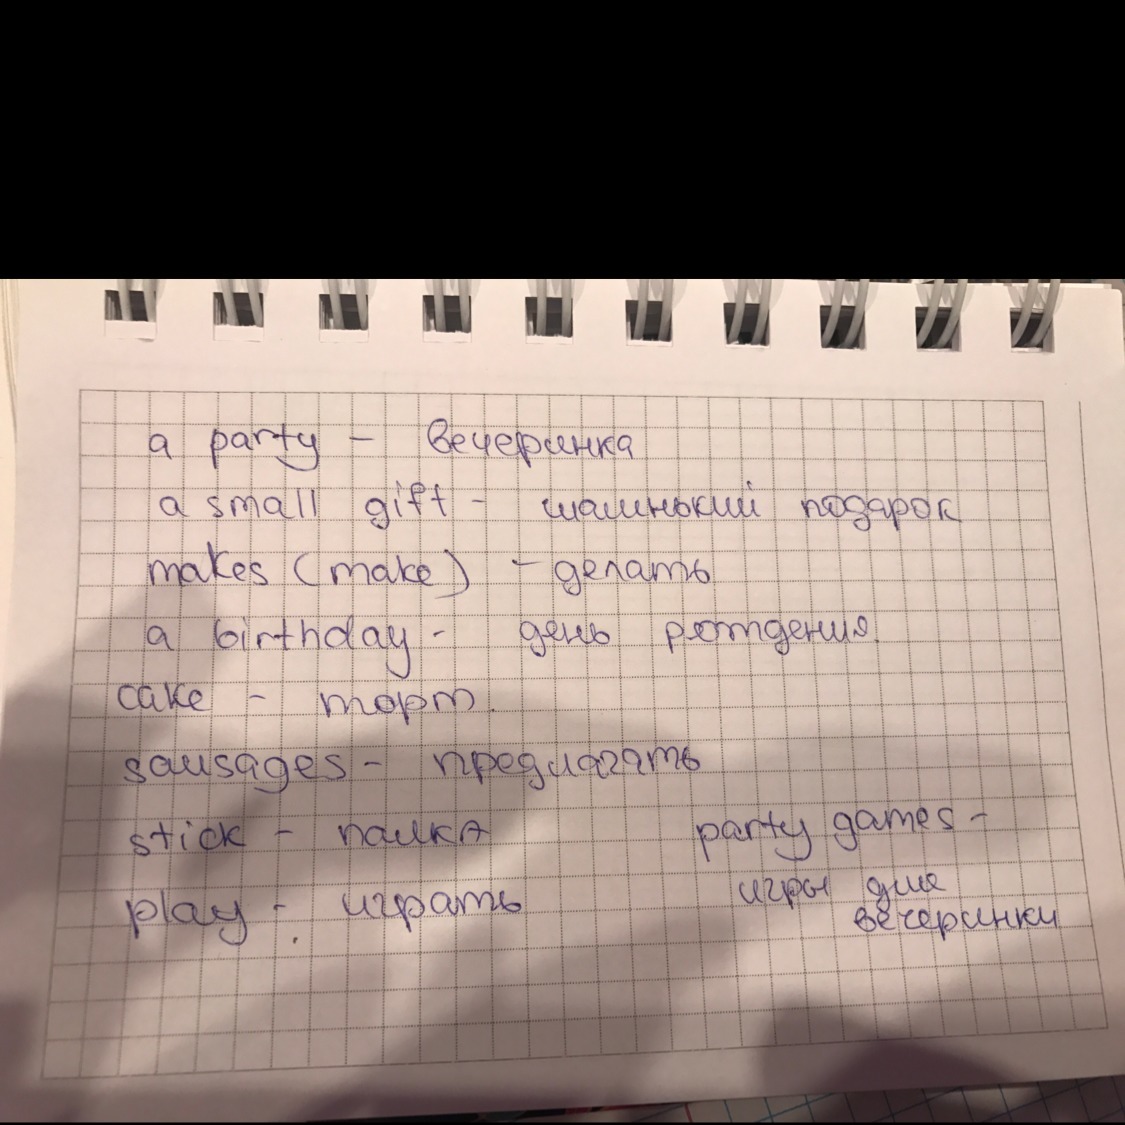 a party - вечеринка
a small gift - малинький подарок
makes (make) - делать
a birthday - день рождения
cake - торт.
sausages - предлагать
stick - палка
party games -
play - играть
игры для
вечеринки